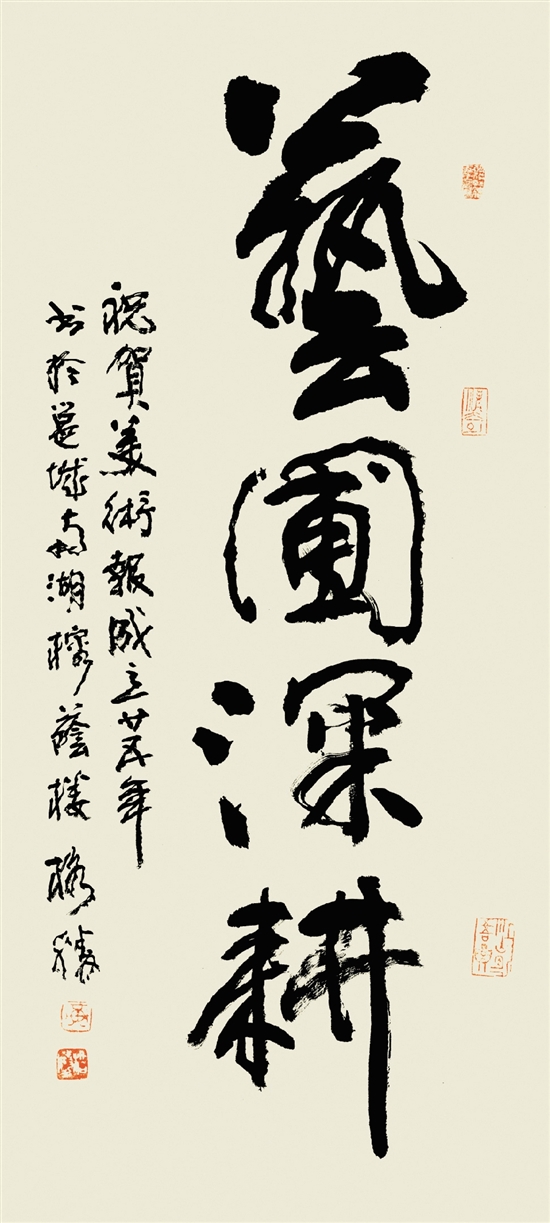 藝圃深耕
祝賀美術報成立廿五年
書於邕城南湖榕蔭樓